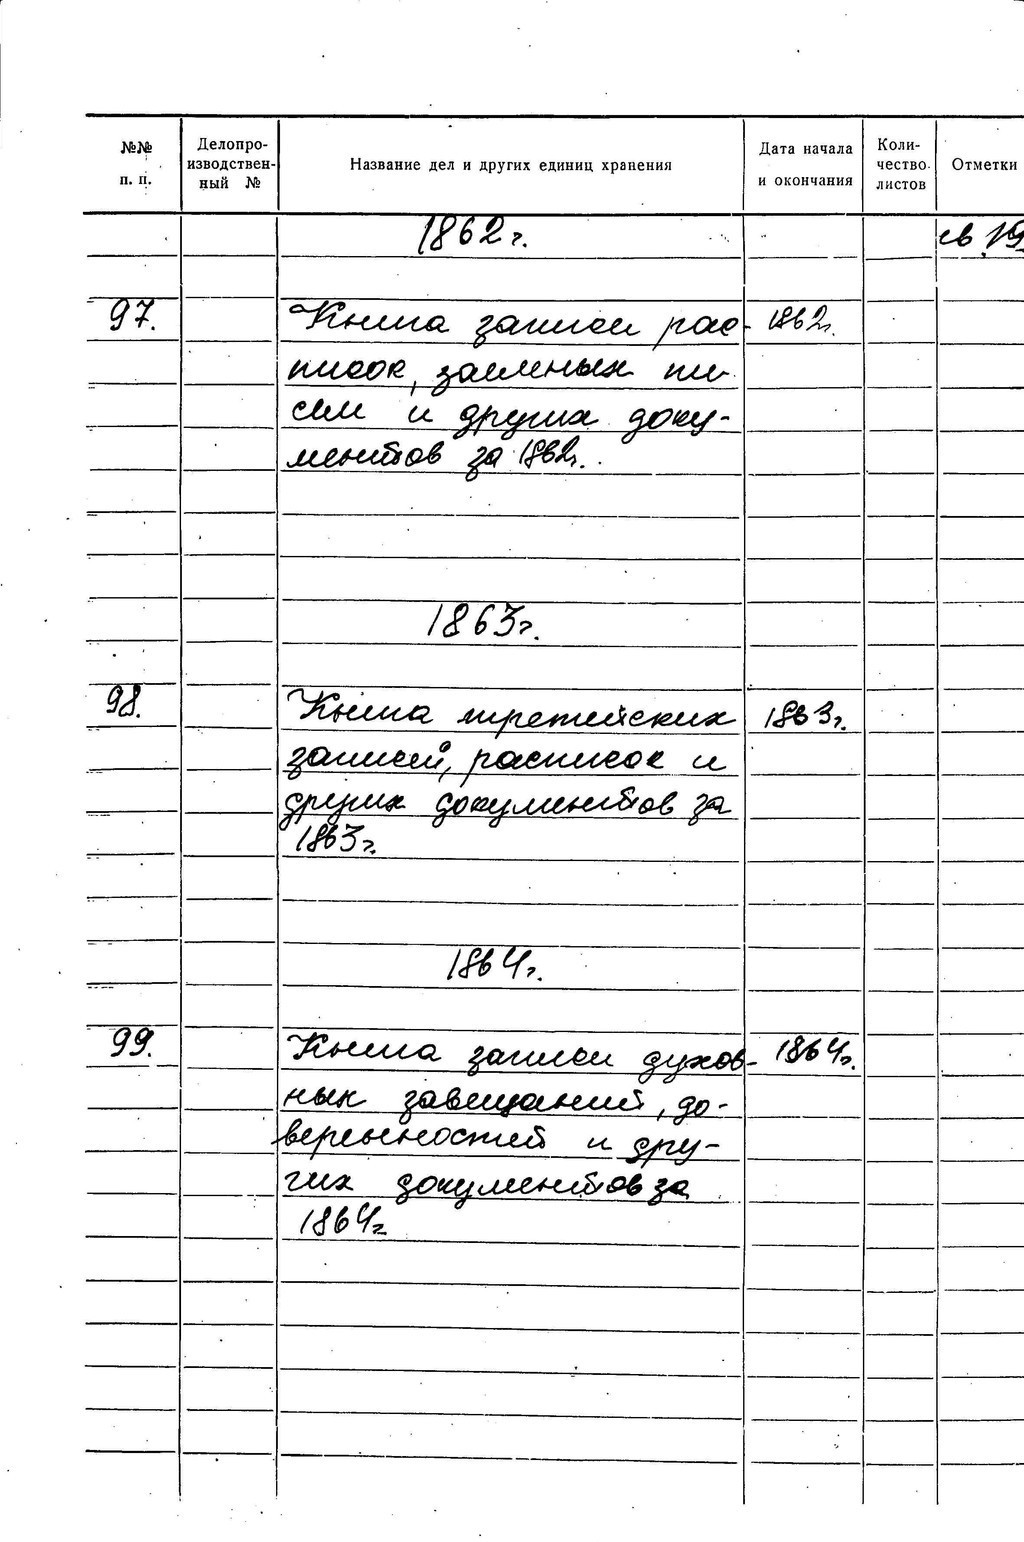 №№ п. п. Делопро- изводствен- ный № Название дел и других единиц хранения Дата начала и окончания Коли- чество листов Отметки
1862 г. св.
97. Книга записи рас- 1862г.
писок, заемных пи
сем и других доку-
ментов за 1862г.
1863г.
98. Книга третейских 1863г.
записей, расписок и
других документов за
1863г.
1864г.
99. Книга записи духов- 1864г.
ных завещаний, до-
веренностей и дру-
гих документов за
1864г